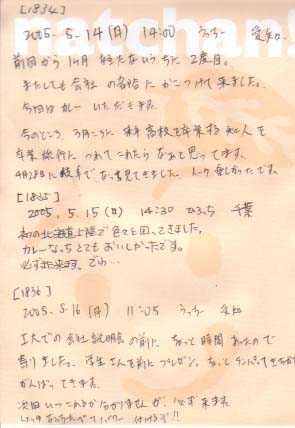 [1834]
natchan!
2005. 5. 14 (月) 14:00 うっちー 愛知
前回から1ヶ月 経たないうちに2度目。
またしても会社の名前にかこつけて来ました。
今回はカレーいただきます。
今のところ、3月ころに 高校を卒業する 知人を
卒業旅行に つれてこれたら なぁと思ってます。
4月28日に岐阜で なっち見てきました。トーク 楽しかったです。
[1835]
2005. 5. 15 (日) 14:30 ひろっち 千葉
初の北海道上陸で色々と回ってきました。
カレーなっちとてもおいしかったです。
必ずまた来ます。でわ…
[1836]
2005. 5. 16 (月) 11:05 うっちー 愛知
工大での会社説明会の前に ちょっと時間あったので
寄りました。学生さんを前にプレゼン、ちょっと
がんばってきます。
次回いつこれるかわかりませんが、必ず来ます。